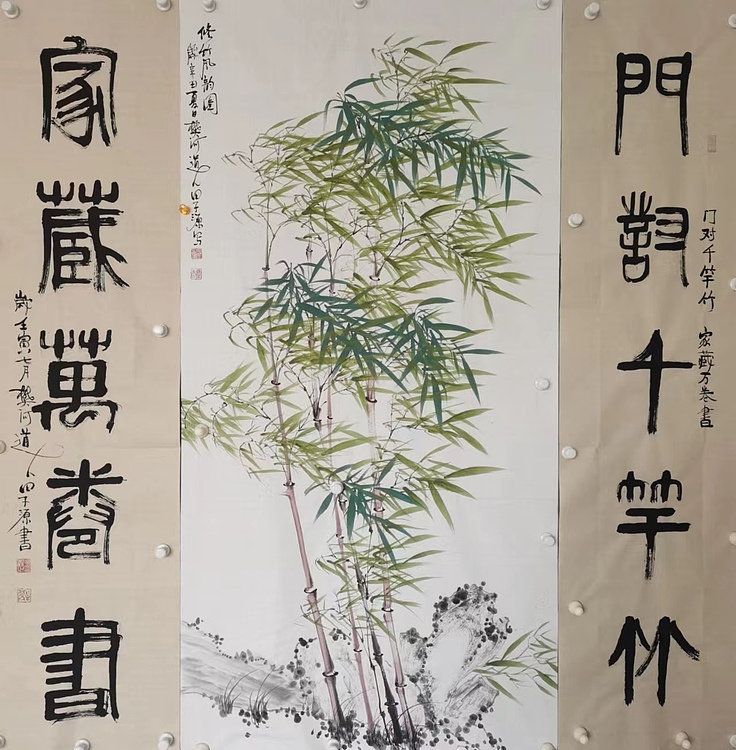 門對千竿竹
门对千竿竹 家藏万卷書
修竹风韵圖
歲辛丑夏日樊河道人田子源写
家藏萬卷書
歲壬寅七月樊河道人田子源書